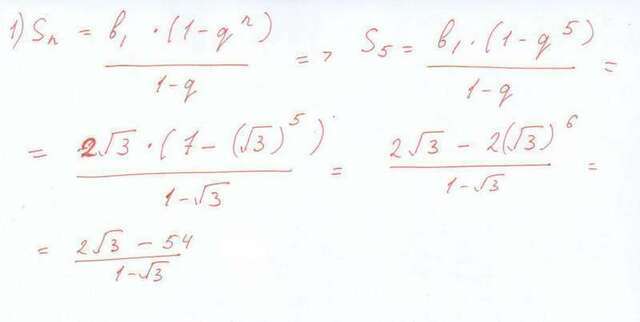 1) Sₙ = b₁ · (1 - qⁿ) / (1 - q) => S₅ = b₁ · (1 - q⁵) / (1 - q) =
= 2√3 · (7 - (√3)⁵) / (1 - √3) = (2√3 - 2(√3)⁶) / (1 - √3) =
= (2√3 - 54) / (1 - √3)